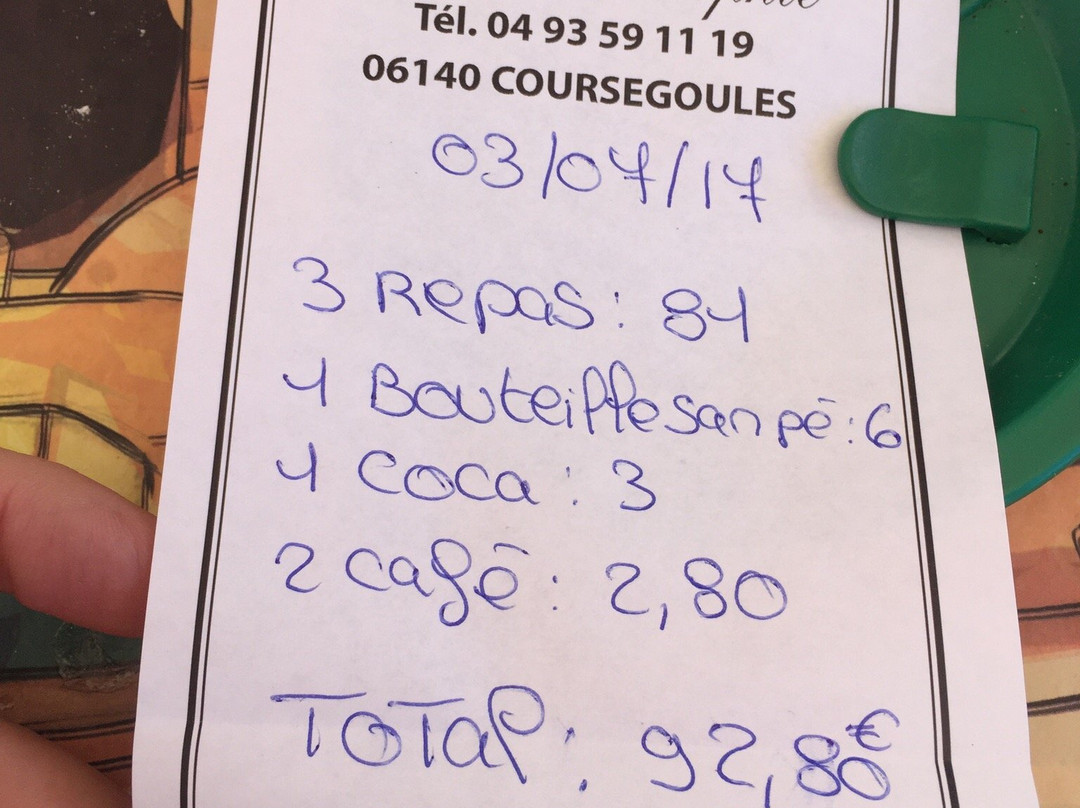 Tél. 04 93 59 11 19
06140 COURSEGOULES
03/07/17
3 Repas : 81
1 Bouteille san pé : 6
1 coca : 3
2 café : 2,80
Total : 92,80€